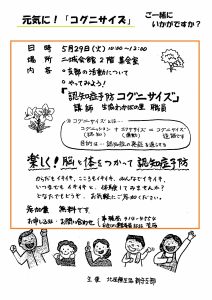 元気に！「コグニサイズ」 ご一緒に
いかがですか？
日 時 5月29日(火) 10:00〜12:00
場 所 二城会館 2階 集会室
内 容 ○支部の活動について
○やってみよう！
『認知症予防コグニサイズ』
講師 生協わかばの里 職員
◎コグニサイズとは…
コグニッション + エクササイズ = コグニサイズ
(認知) (運動)
目的は…認知症の発症を遅らせる
楽しく！脳と体をつかって 認知症予防
からだもイキイキ、こころもイキイキ、みんなでイキイキ、
いつまでもイキイキと、体験してみませんか？
どなたでもどうぞ、お気軽にご参加ください。
参加費 無料です
お申し込み・お問い合わせ
主催